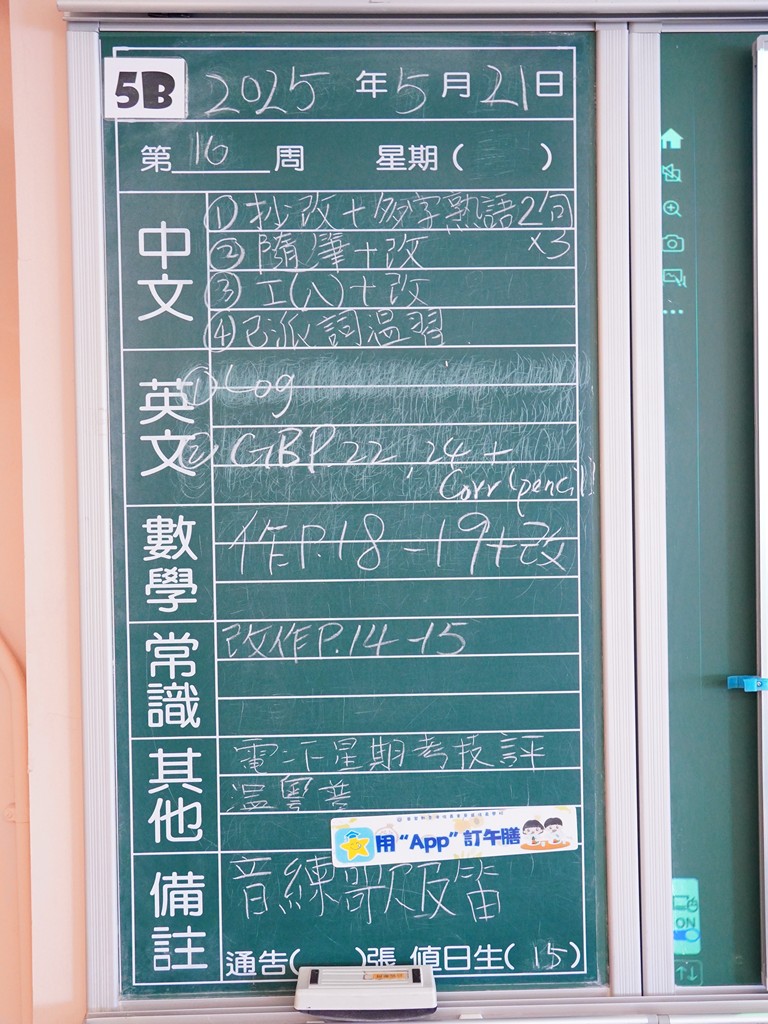 5B 2025年5月21日
第16周 星期( )
中文
①抄改+多字熟語2句
x3
②隨筆+改
③工(八)+改
④已派詞溫習
英文
①Log
②GBP.22, 24 +
Corr(pencil)
數學
作P.18-19+改
常識
改作P.14-15
其他
電:下星期考技評
溫粵普
用“App”訂午膳
備註
音練歌及笛
通告( )張 值日生(15)
ON